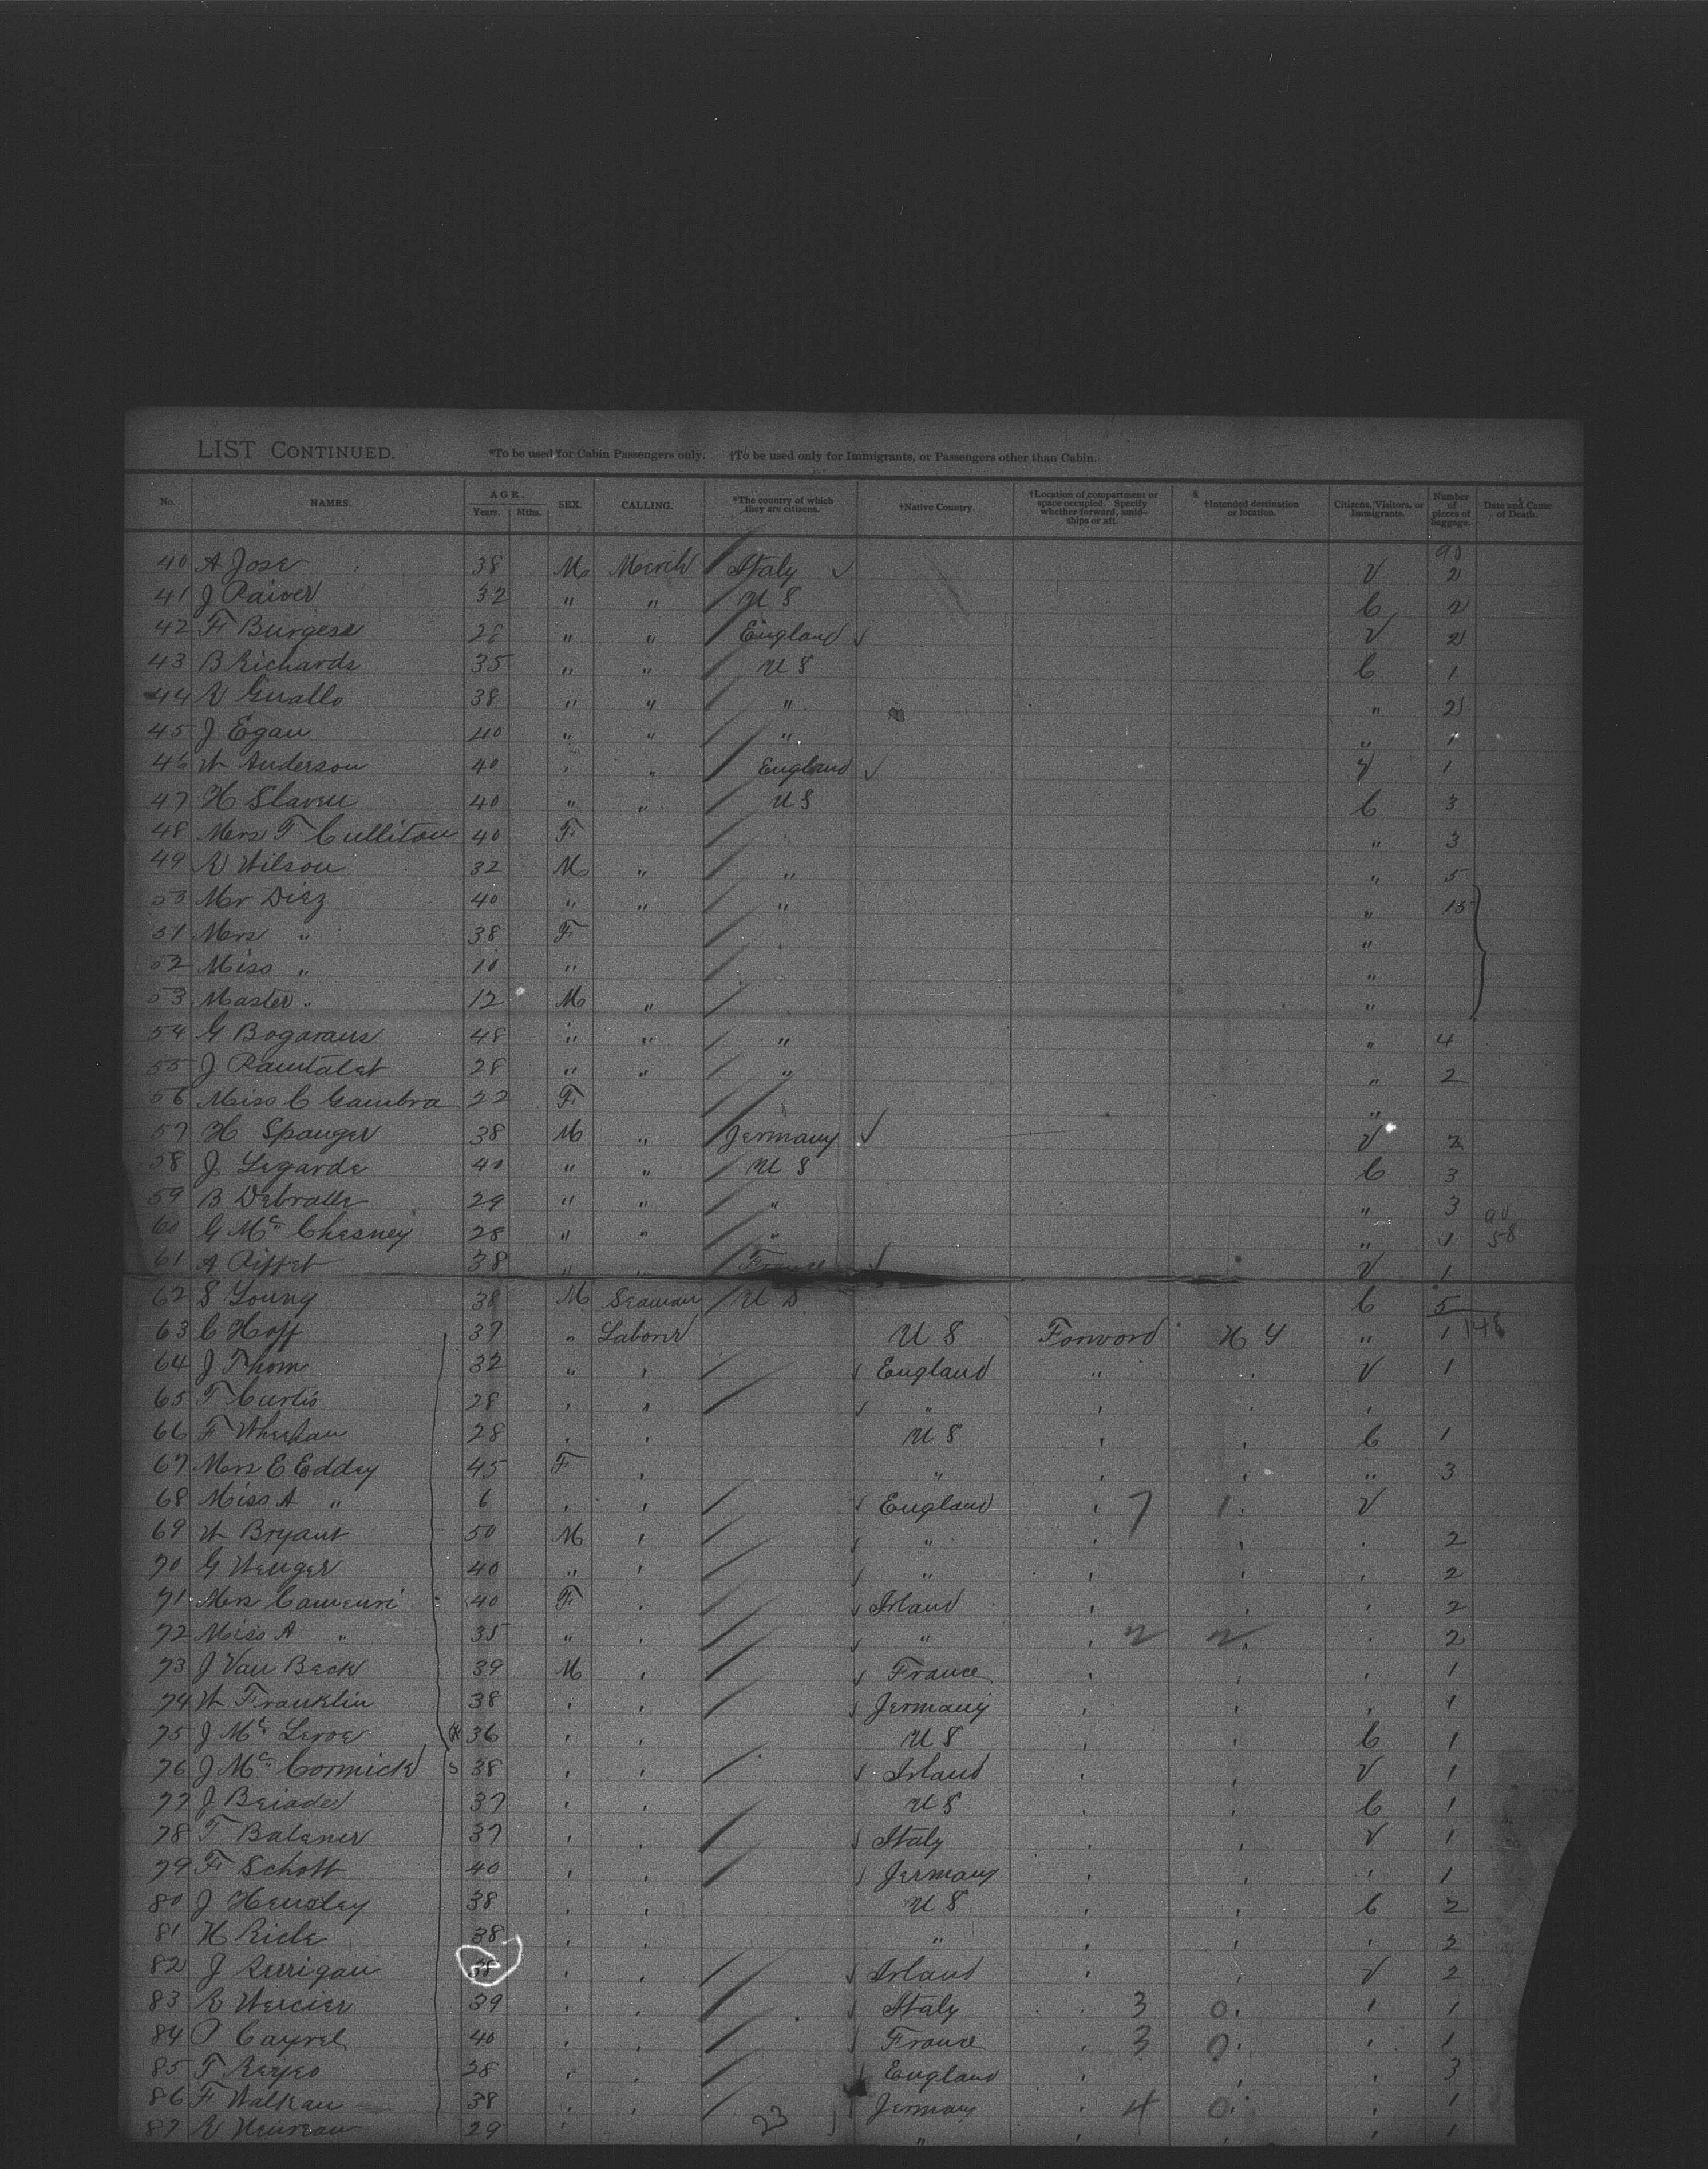 LIST CONTINUED. *To be used for Cabin Passengers only. †To be used only for Immigrants, or Passengers other than Cabin.
No. NAMES. AGE. Years. Mths. SEX. CALLING. *The country of which they are citizens. †Native Country. †Location of compartment or space occupied. Specify whether forward, amidships or aft. †Intended destination or location. Citizens, Visitors, or Immigrants. Number of pieces of baggage. Date and Cause of Death.
40 A Jose 38 M Merch Italy ✓ V 2
41 J Raiver 32 " " U S C 2
42 F Burgess 28 " " England ✓ V 2
43 B Richards 35 " " U S C 1
44 R Guallo 38 " " " " 2
45 J Egan 40 " " " " 1
46 W Anderson 40 " " England ✓ V 1
47 H Slaven 40 " " U S C 3
48 Mrs T Culliton 40 F " 3
49 R Wilson 32 M " " " 5
50 Mr Diez 40 " " " " 15
51 Mrs " 38 F "
52 Miss " 10 " "
53 Master " 12 M " "
54 G Bogarans 48 " " " " 4
55 J Rautalat 28 " " " " 2
56 Miss C Gambra 22 F "
57 H Spanger 38 M " Germany ✓ V 2
58 J Legarde 40 " " U S C 3
59 B Debralle 29 " " " " 3
60 G McChesney 28 " " " " 1 58
61 A Piffet 38 " " France ✓ V 1
62 S Young 38 M Seaman U S C 5
63 C Hoff 37 " Laborer U S Forword N Y " 1 148
64 J Thom 32 " " ✓ England " " V 1
65 T Curtis 28 " " ✓ " " " "
66 F Wheehan 28 " " U S " " C 1
67 Mrs E Edday 45 F " " " " " 3
68 Miss A " 6 " " ✓ England " 7 1 V
69 W Bryant 50 M " ✓ " " " " 2
70 G Wenger 40 " " ✓ " " " " 2
71 Mrs Camenri 40 F " ✓ Irland " " " 2
72 Miss A " 35 " " ✓ " " 2 2 " 2
73 J Van Beck 39 M " ✓ France " " " 1
74 W Franklin 38 " " ✓ Jermany " " " 1
75 J McLeroe 36 " " U S " " C 1
76 J McCormick 38 " " ✓ Irland " " V 1
77 J Beiades 37 " " U S " " C 1
78 T Balener 37 " " ✓ Italy " " V 1
79 F Schott 40 " " ✓ Jermany " " " 1
80 J Hensley 38 " " U S " " C 2
81 H Ricle 38 " " " " " " 2
82 J Rerrigan 38 " " ✓ Irland " " V 2
83 R Mercier 39 " " ✓ Italy " 3 0 " 1
84 P Cayrel 40 " " ✓ France " 3 0 " 1
85 T Reyes 28 " " ✓ England " " " 3
86 F Walkau 38 " " Jermany " 4 0 " 1
87 R 29 " 23 " " " " 1